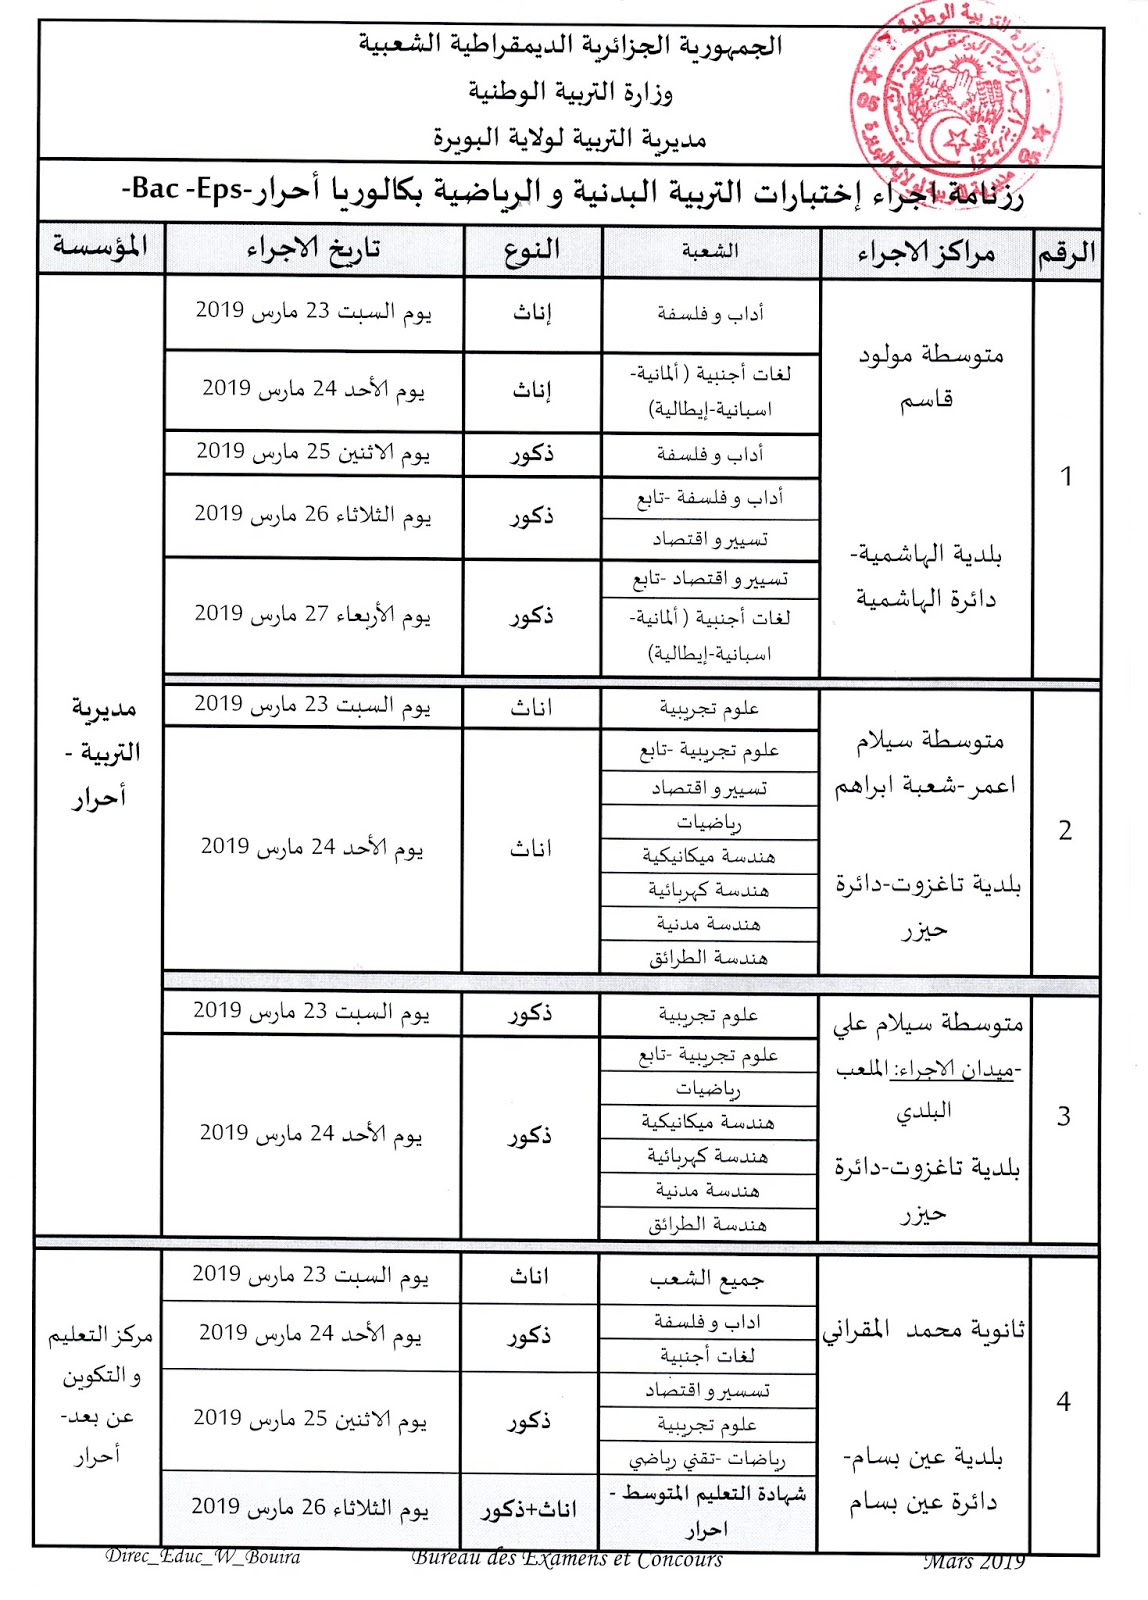 الجمهورية الجزائرية الديمقراطية الشعبية
وزارة التربية الوطنية
مديرية التربية لولاية البويرة
وزارة التربية الوطنية
مديرية التربية لولاية البويرة
05
05
رزنامة اجراء إختبارات التربية البدنية و الرياضية بكالوريا أحرار-Bac -Eps-
الرقم مراكز الاجراء الشعبة النوع تاريخ الاجراء المؤسسة
1
متوسطة مولود
قاسم
بلدية الهاشمية-
دائرة الهاشمية
أداب و فلسفة إناث يوم السبت 23 مارس 2019
لغات أجنبية ( ألمانية-
اسبانية-إيطالية)
إناث يوم الأحد 24 مارس 2019
أداب و فلسفة ذكور يوم الاثنين 25 مارس 2019
أداب و فلسفة -تابع
تسيير و اقتصاد
ذكور يوم الثلاثاء 26 مارس 2019
تسيير و اقتصاد -تابع
لغات أجنبية ( ألمانية-
اسبانية-إيطالية)
ذكور يوم الأربعاء 27 مارس 2019
مديرية
التربية -
أحرار
2
متوسطة سيلام
اعمر -شعبة ابراهم
بلدية تاغزوت-دائرة
حيزر
علوم تجريبية اناث يوم السبت 23 مارس 2019
علوم تجريبية -تابع
تسيير و اقتصاد
رياضيات
هندسة ميكانيكية
هندسة كهربائية
هندسة مدنية
هندسة الطرائق
اناث يوم الأحد 24 مارس 2019
3
متوسطة سيلام علي
-ميدان الاجراء: الملعب
البلدي
بلدية تاغزوت-دائرة
حيزر
علوم تجريبية ذكور يوم السبت 23 مارس 2019
علوم تجريبية -تابع
رياضيات
هندسة ميكانيكية
هندسة كهربائية
هندسة مدنية
هندسة الطرائق
ذكور يوم الأحد 24 مارس 2019
4
ثانوية محمد المقراني
بلدية عين بسام-
دائرة عين بسام
جميع الشعب اناث يوم السبت 23 مارس 2019
اداب و فلسفة
لغات أجنبية
ذكور يوم الأحد 24 مارس 2019
تسسير و اقتصاد
علوم تجريبية
رياضات -تقني رياضي
ذكور يوم الاثنين 25 مارس 2019
شهادة التعليم المتوسط -
احرار
اناث+ذكور يوم الثلاثاء 26 مارس 2019
مركز التعليم
و التكوين
عن بعد-
أحرار
Direc_Educ_W_Bouira Bureau des Examens et Concours Mars 2019